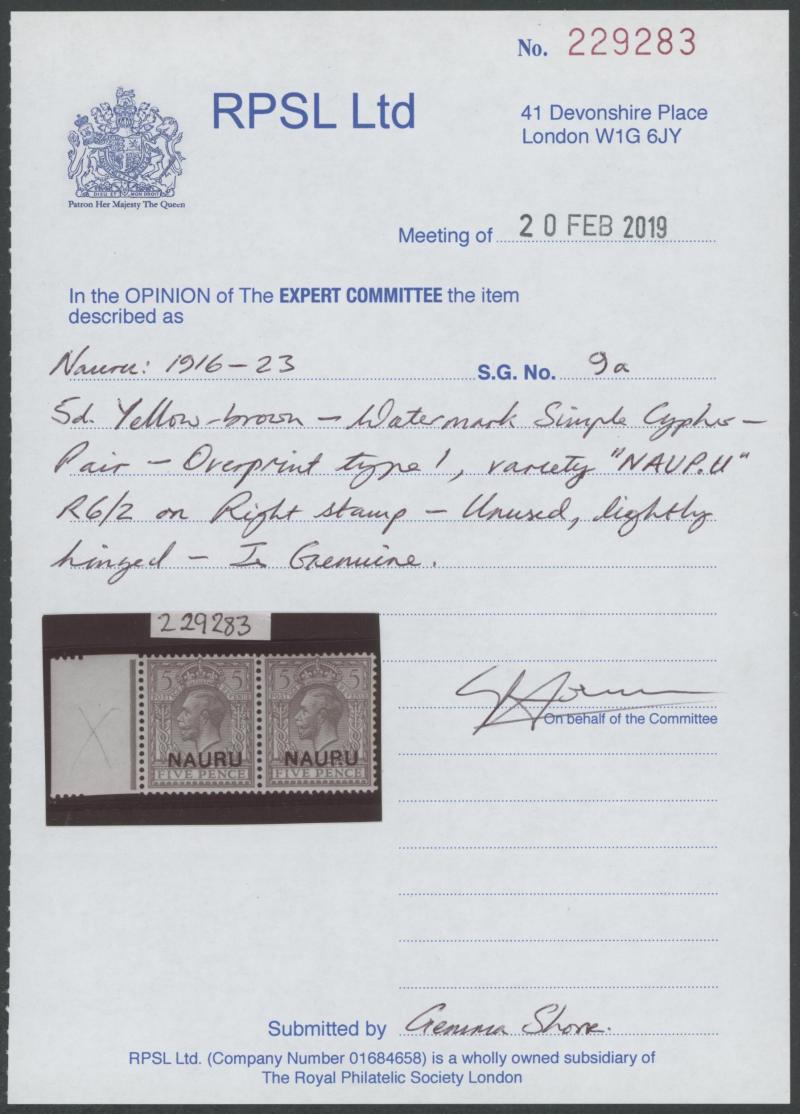 No. 229283
RPSL Ltd
41 Devonshire Place
London W1G 6JY
DIEU ET MON DROIT
Patron Her Majesty The Queen
Meeting of 20 FEB 2019
In the OPINION of The EXPERT COMMITTEE the item
described as
Nauru: 1916-23 S.G. No. 9a
5d. Yellow-brown - Watermark Simple Cypher -
Pair - Overprint type 1, variety "NAUP.U"
R6/2 on Right stamp - Unused, lightly
hinged - Is Genuine.
229283
5 5 5 5
NAURU NAURU
FIVE PENCE FIVE PENCE
X
On behalf of the Committee
Submitted by Gemma Shore.
RPSL Ltd. (Company Number 01684658) is a wholly owned subsidiary of
The Royal Philatelic Society London